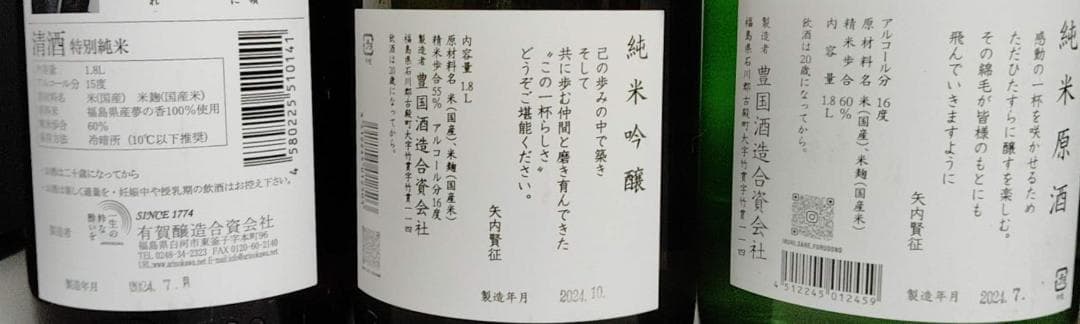 清酒 特別純米
1.8L
アルコール分 15度
米(国産) 米麹(国産米)
福島県産夢の香100%使用
60%
冷暗所 (10℃以下推奨)
・お酒は二十歳になってから
・お酒は楽しく適量を・妊娠中や授乳期の飲酒はお控え下さい。
SINCE 1774
製造者 有賀醸造合資会社
福島県白河市東釜子字本町96
TEL 0248-34-2323 FAX 0120-60-2140
製造年月 2024. 7.
4 580225 510141
純米吟醸
己の歩みの中で築き
そして
共に歩む仲間と磨き育んできた
“この一杯らしさ”
どうぞご堪能ください。
矢内賢征
内容量 1.8L
原材料名 米(国産)、米麹(国産米)
精米歩合 55% アルコール分 16度
製造者 豊国酒造合資会社
福島県石川郡古殿町大字竹貫字竹貫一一四
飲酒は20歳になってから。
製造年月 2024. 10.
純米原酒
感動の一杯を咲かせるため
ただひたすらに醸すを楽しむ。
その綿毛が皆様のもとにも
飛んでいきますように
矢内賢征
アルコール分 16度
原材料名 米(国産)、米麹(国産米)
精米歩合 60%
内容量 1.8L
製造者 豊国酒造合資会社
福島県石川郡古殿町大字竹貫字竹貫一一四
飲酒は20歳になってから。
4 512245 012459
製造年月 2024. 7.